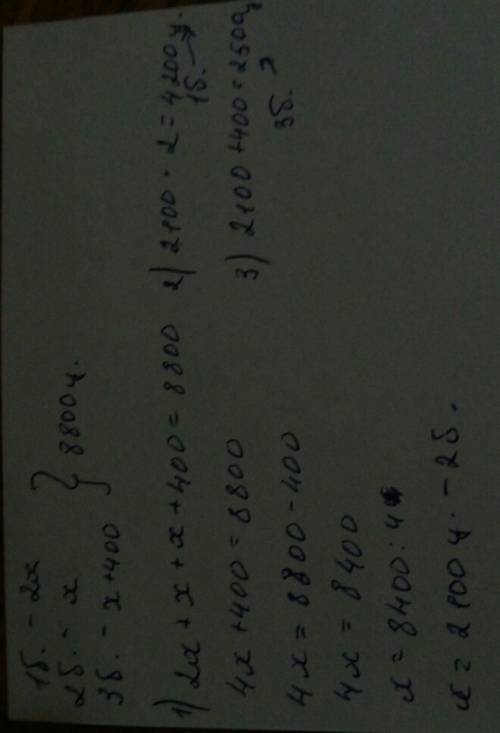 1б. - 2x
2б. - x } 8800ц.
3б. - x+400
1) 2x + x + x + 400 = 8800
4x + 400 = 8800
4x = 8800 - 400
4x = 8400
x = 8400 : 4
x = 2100 ц. - 2б.
2) 2100 · 2 = 4200ц.
1б. →
3) 2100 + 400 = 2500ц
3б. →